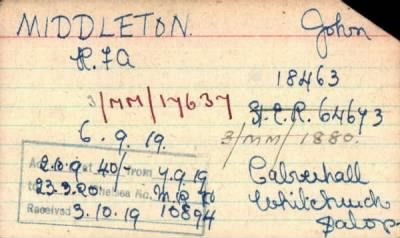 MIDDLETON. John
R.F.A 18463
3/MM/17637 S.E.R. 64673
6.9.19. 3/MM/1880.
2.10.9. 40/- from 4.9.19 Calverhall
23.3.20 Chelsea No. Whitchurch
Received 3.10.19 10894 Salop